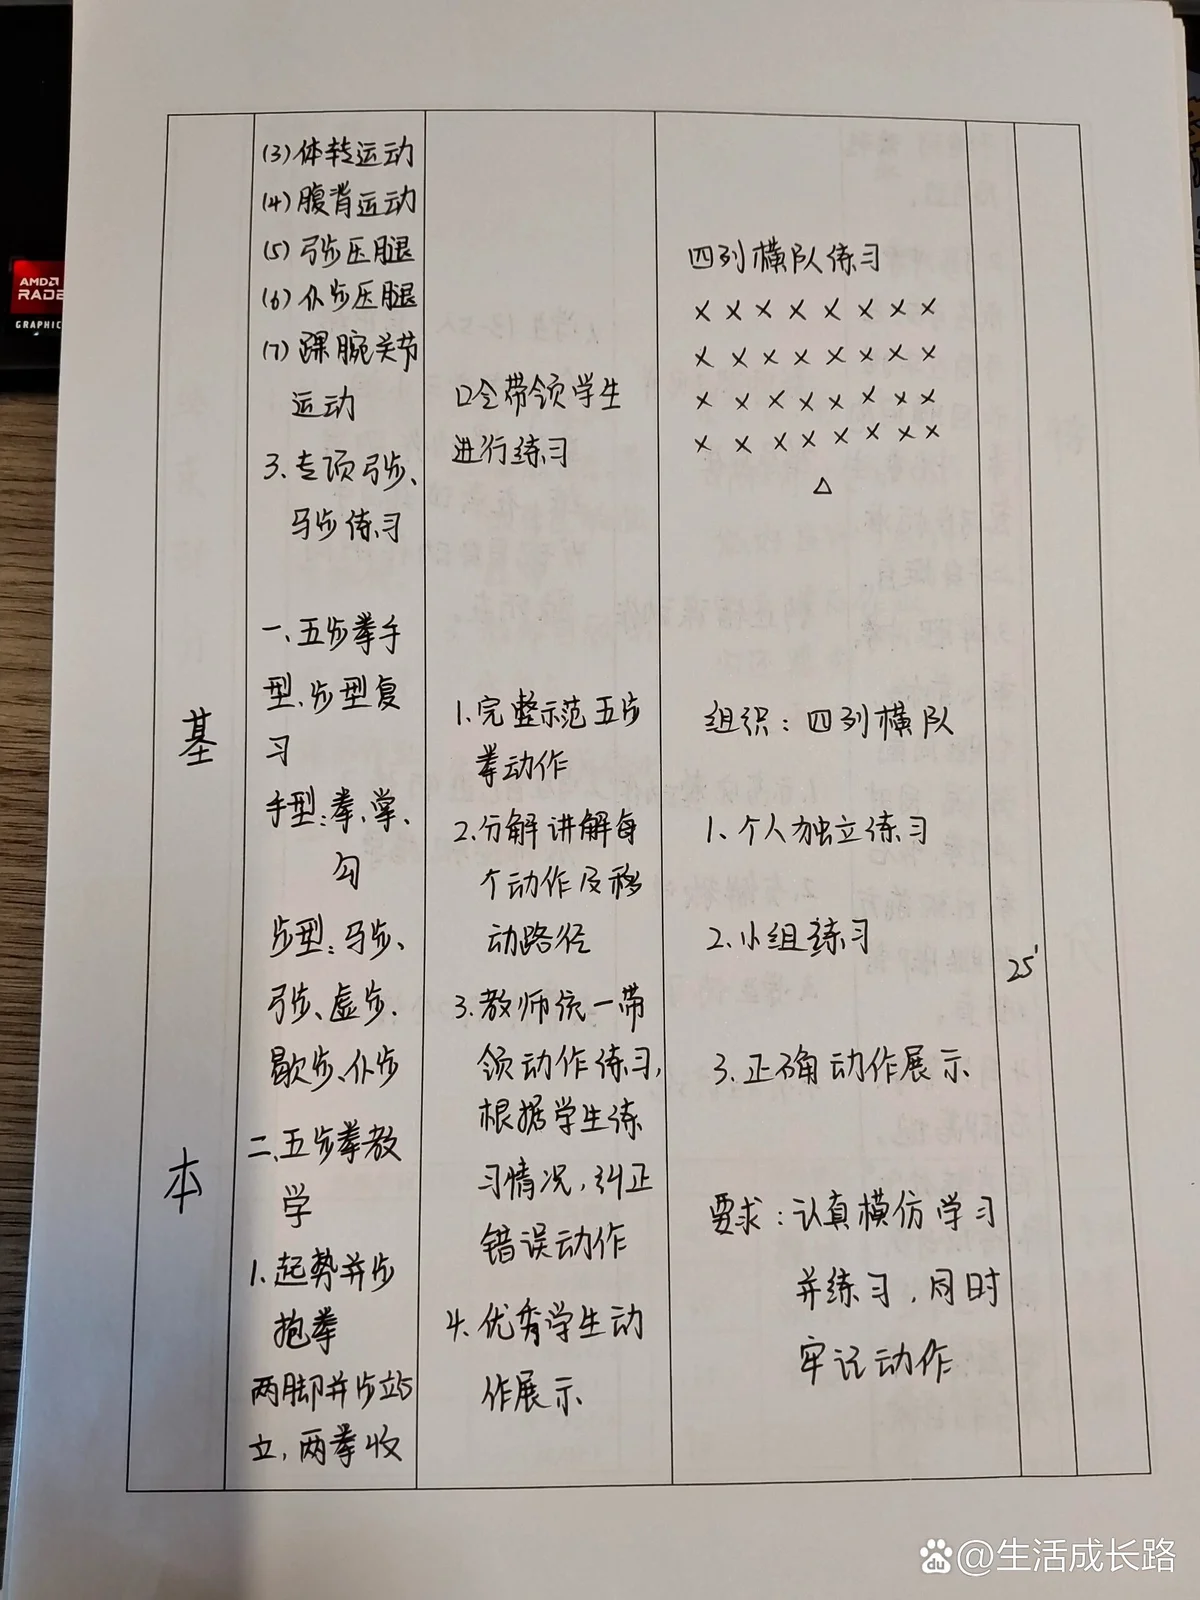 AMD
RADE
GRAPHIC
基
本
(3)体转运动
(4)腹背运动
(5)弓步压腿
(6)仆步压腿
(7)踝腕关节
运动
3.专项弓步、
马步练习
一、五步拳手
型、步型复
习
手型:拳、掌、
勾
步型:马步、
弓步、虚步、
歇步、仆步
二、五步拳教
学
1.起势并步
抱拳
两脚并步站
立,两拳收
口令带领学生
进行练习
1.完整示范五步
拳动作
2.分解讲解每
个动作及移
动路径
3.教师统一带
领动作练习,
根据学生练
习情况,纠正
错误动作
4.优秀学生动
作展示
四列横队练习
× × × × × × × ×
× × × × × × × ×
× × × × × × × ×
× × × × × × × ×
△
组织:四列横队
1.个人独立练习
2.小组练习
3.正确动作展示
要求:认真模仿学习
并练习,同时
牢记动作
25'
Bai du @生活成长路